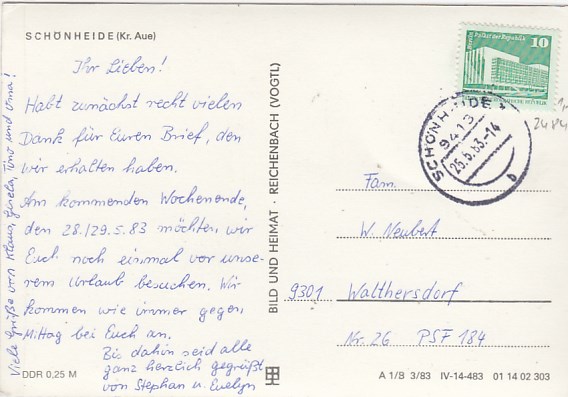 SCHÖNHEIDE (Kr. Aue)
Ihr Lieben!
Habt zunächst recht vielen
Dank für Euren Brief, den
wir erhalten haben.
Am kommenden Wochenende,
den 28./29.5.83 möchten wir
Euch noch einmal vor unse-
rem Urlaub besuchen. Wir
kommen wie immer gegen
Mittag bei Euch an.
Bis dahin seid alle
ganz herzlich gegrüßt
von Stephan u. Evelyn
Viele Grüße von Klaus, Gisela, Tino und Oma!
DDR 0,25 M
BILD UND HEIMAT · REICHENBACH (VOGTL)
10
Palast der Republik
SCHÖNHEIDE
9413
25.5.83-14
b
Fam.
W. Neubert
9301 Walthersdorf
Nr. 26 PSF 184
A 1/B 3/83 IV-14-483 01 14 02 303